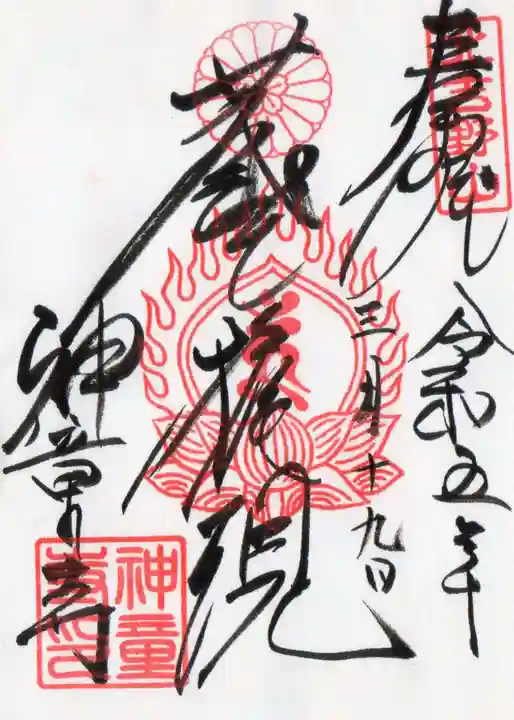 奉拝
令和五年
三月十九日
蔵王権現
神童寺
北吉野山
神童
寺印